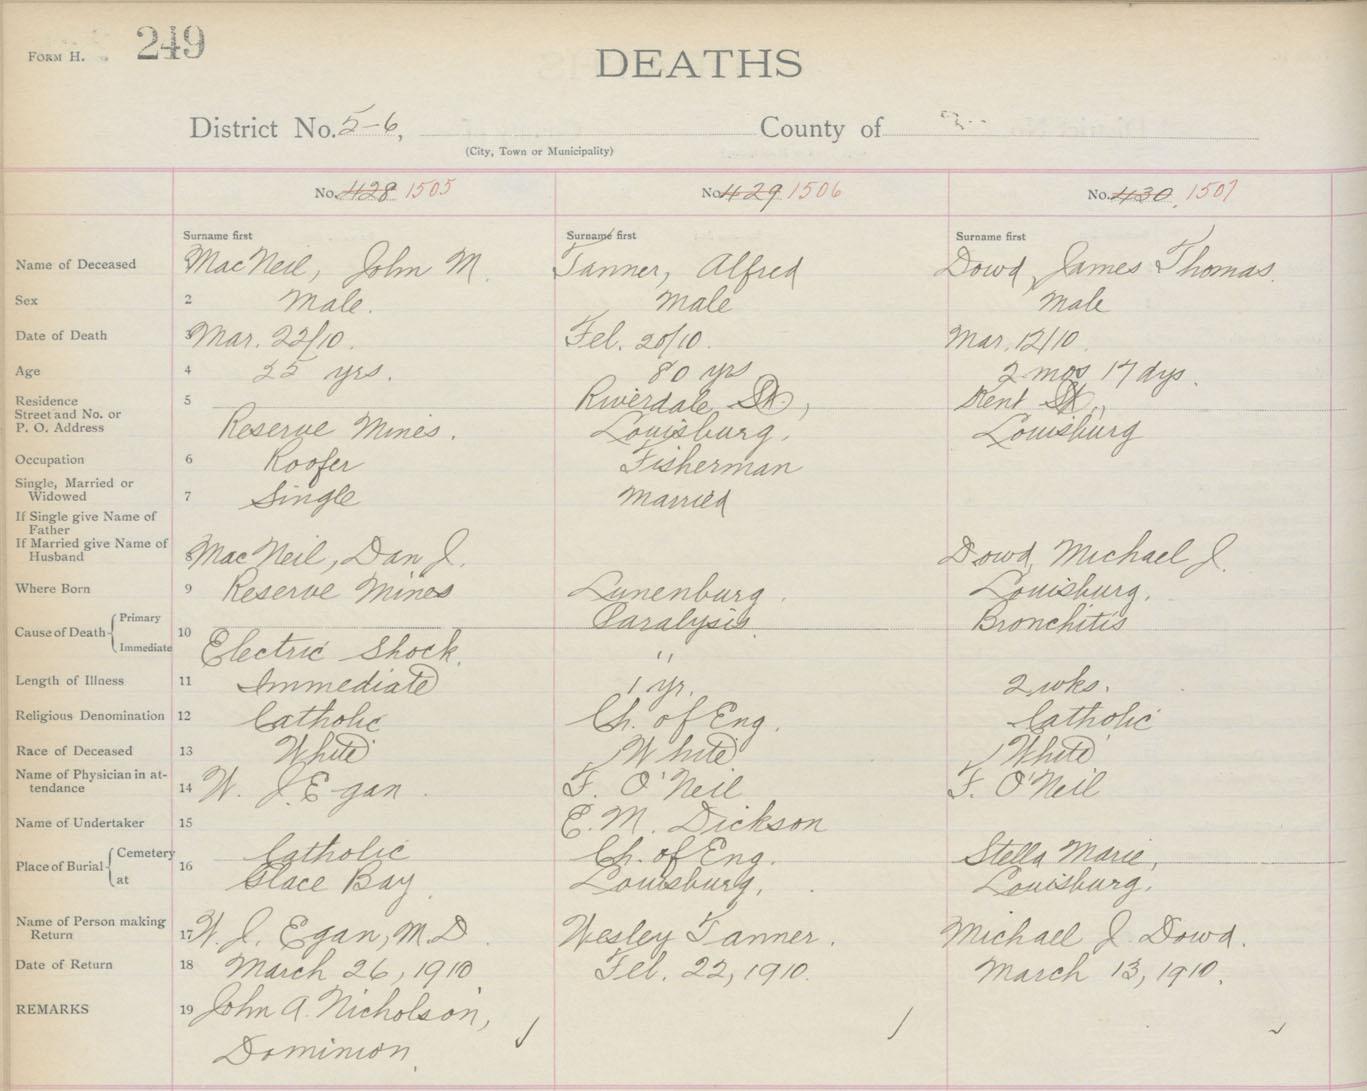 FORM H. 249
DEATHS
District No. 5-6, County of
(City, Town or Municipality)
No. 428 1505 No. 429 1506 No. 430. 1507
Surname first Surname first Surname first
Name of Deceased MacNeil, John M. Tanner, Alfred Dowd, James Thomas.
Sex 2 Male. Male Male
Date of Death 3 Mar. 22/10. Feb. 20/10. Mar. 12/10.
Age 4 25 yrs. 80 yrs 2 mos 17 dys.
Residence 5 Riverdale St., Kent St.,
Street and No. or
P. O. Address Reserve Mines. Louisburg. Louisburg
Occupation 6 Roofer Fisherman
Single, Married or
Widowed 7 Single Married
If Single give Name of
Father
If Married give Name of
Husband 8 MacNeil, Dan J. Dowd, Michael J.
Where Born 9 Reserve Mines Lunenburg. Louisburg.
Cause of Death Primary 10 Paralysis. Bronchitis
Immediate Electric Shock. "
Length of Illness 11 Immediate 1 yr. 2 wks.
Religious Denomination 12 Catholic Ch. of Eng. Catholic
Race of Deceased 13 White White White
Name of Physician in at-
tendance 14 W. J. Egan. F. O'Neil F. O'Neil
Name of Undertaker 15 E. M. Dickson
Place of Burial Cemetery 16 Catholic Ch. of Eng. Stella Marie,
at Glace Bay. Louisburg. Louisburg.
Name of Person making
Return 17 W. J. Egan, M.D. Wesley Tanner. Michael J. Dowd.
Date of Return 18 March 26, 1910 Feb. 22, 1910. March 13, 1910.
REMARKS 19 John A. Nicholson,
Dominion.